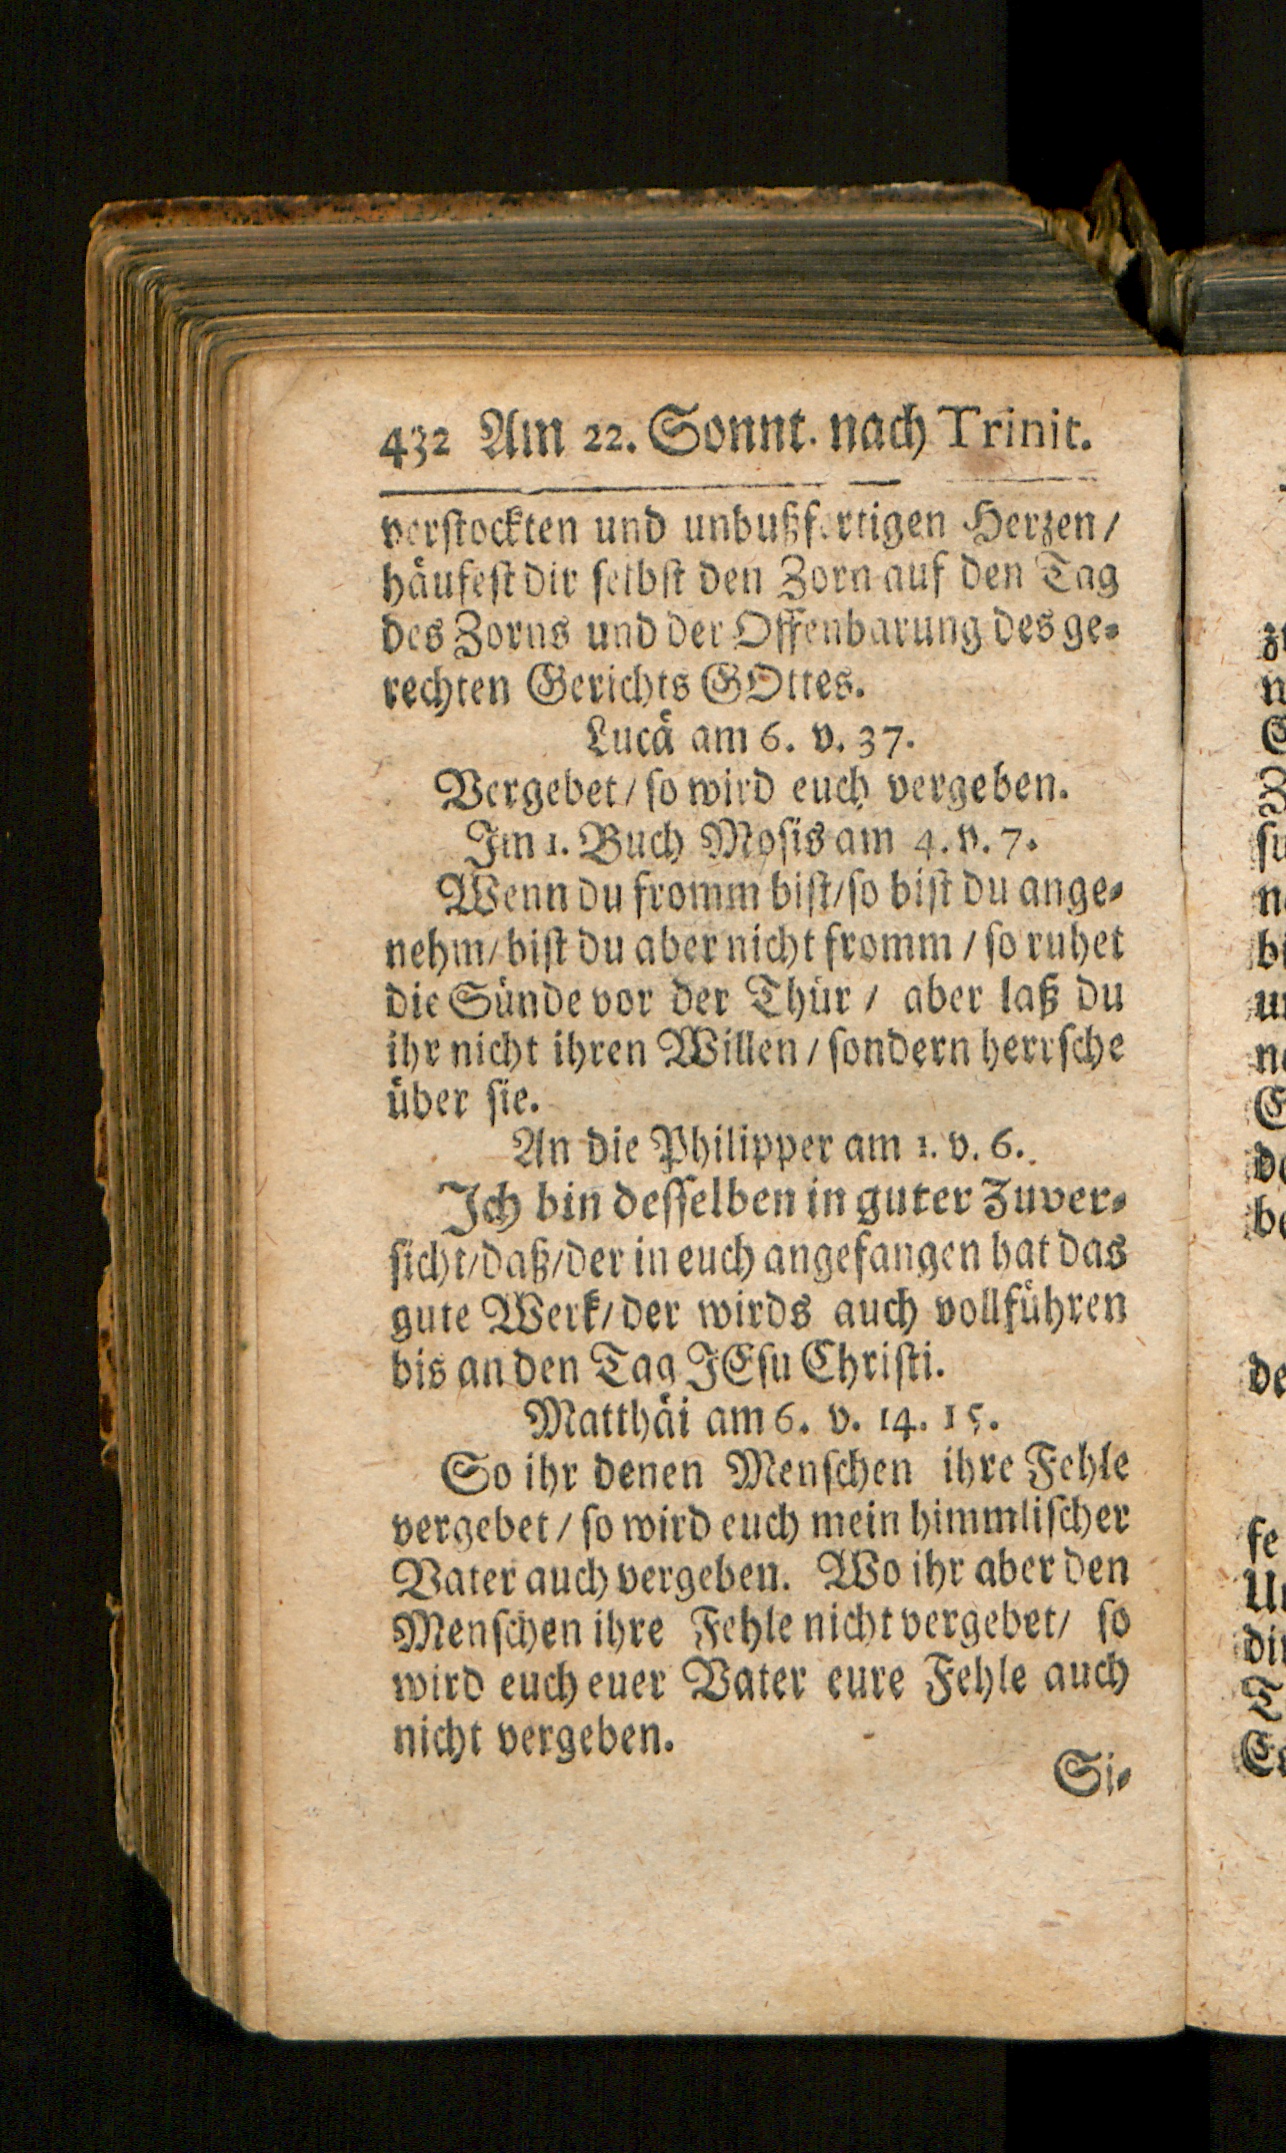 432 Am 22. Sonnt. nach Trinit.
verstockten und unbußfertigen Herzen/
häufest dir selbst den Zorn auf den Tag
des Zorns und der Offenbarung des ge-
rechten Gerichts GOttes.
Lucä am 6. v. 37.
Vergebet/ so wird euch vergeben.
Im 1. Buch Mosis am 4. v. 7.
Wenn du fromm bist/ so bist du ange-
nehm/ bist du aber nicht fromm / so ruhet
die Sünde vor der Thür / aber laß du
ihr nicht ihren Willen / sondern herrsche
über sie.
An die Philipper am 1. v. 6.
Ich bin desselben in guter Zuver-
sicht/ daß/ der in euch angefangen hat das
gute Werk/ der wirds auch vollführen
bis an den Tag JEsu Christi.
Matthäi am 6. v. 14. 15.
So ihr denen Menschen ihre Fehle
vergebet / so wird euch mein himmlischer
Vater auch vergeben. Wo ihr aber den
Menschen ihre Fehle nicht vergebet/ so
wird euch euer Vater eure Fehle auch
nicht vergeben.
Si-